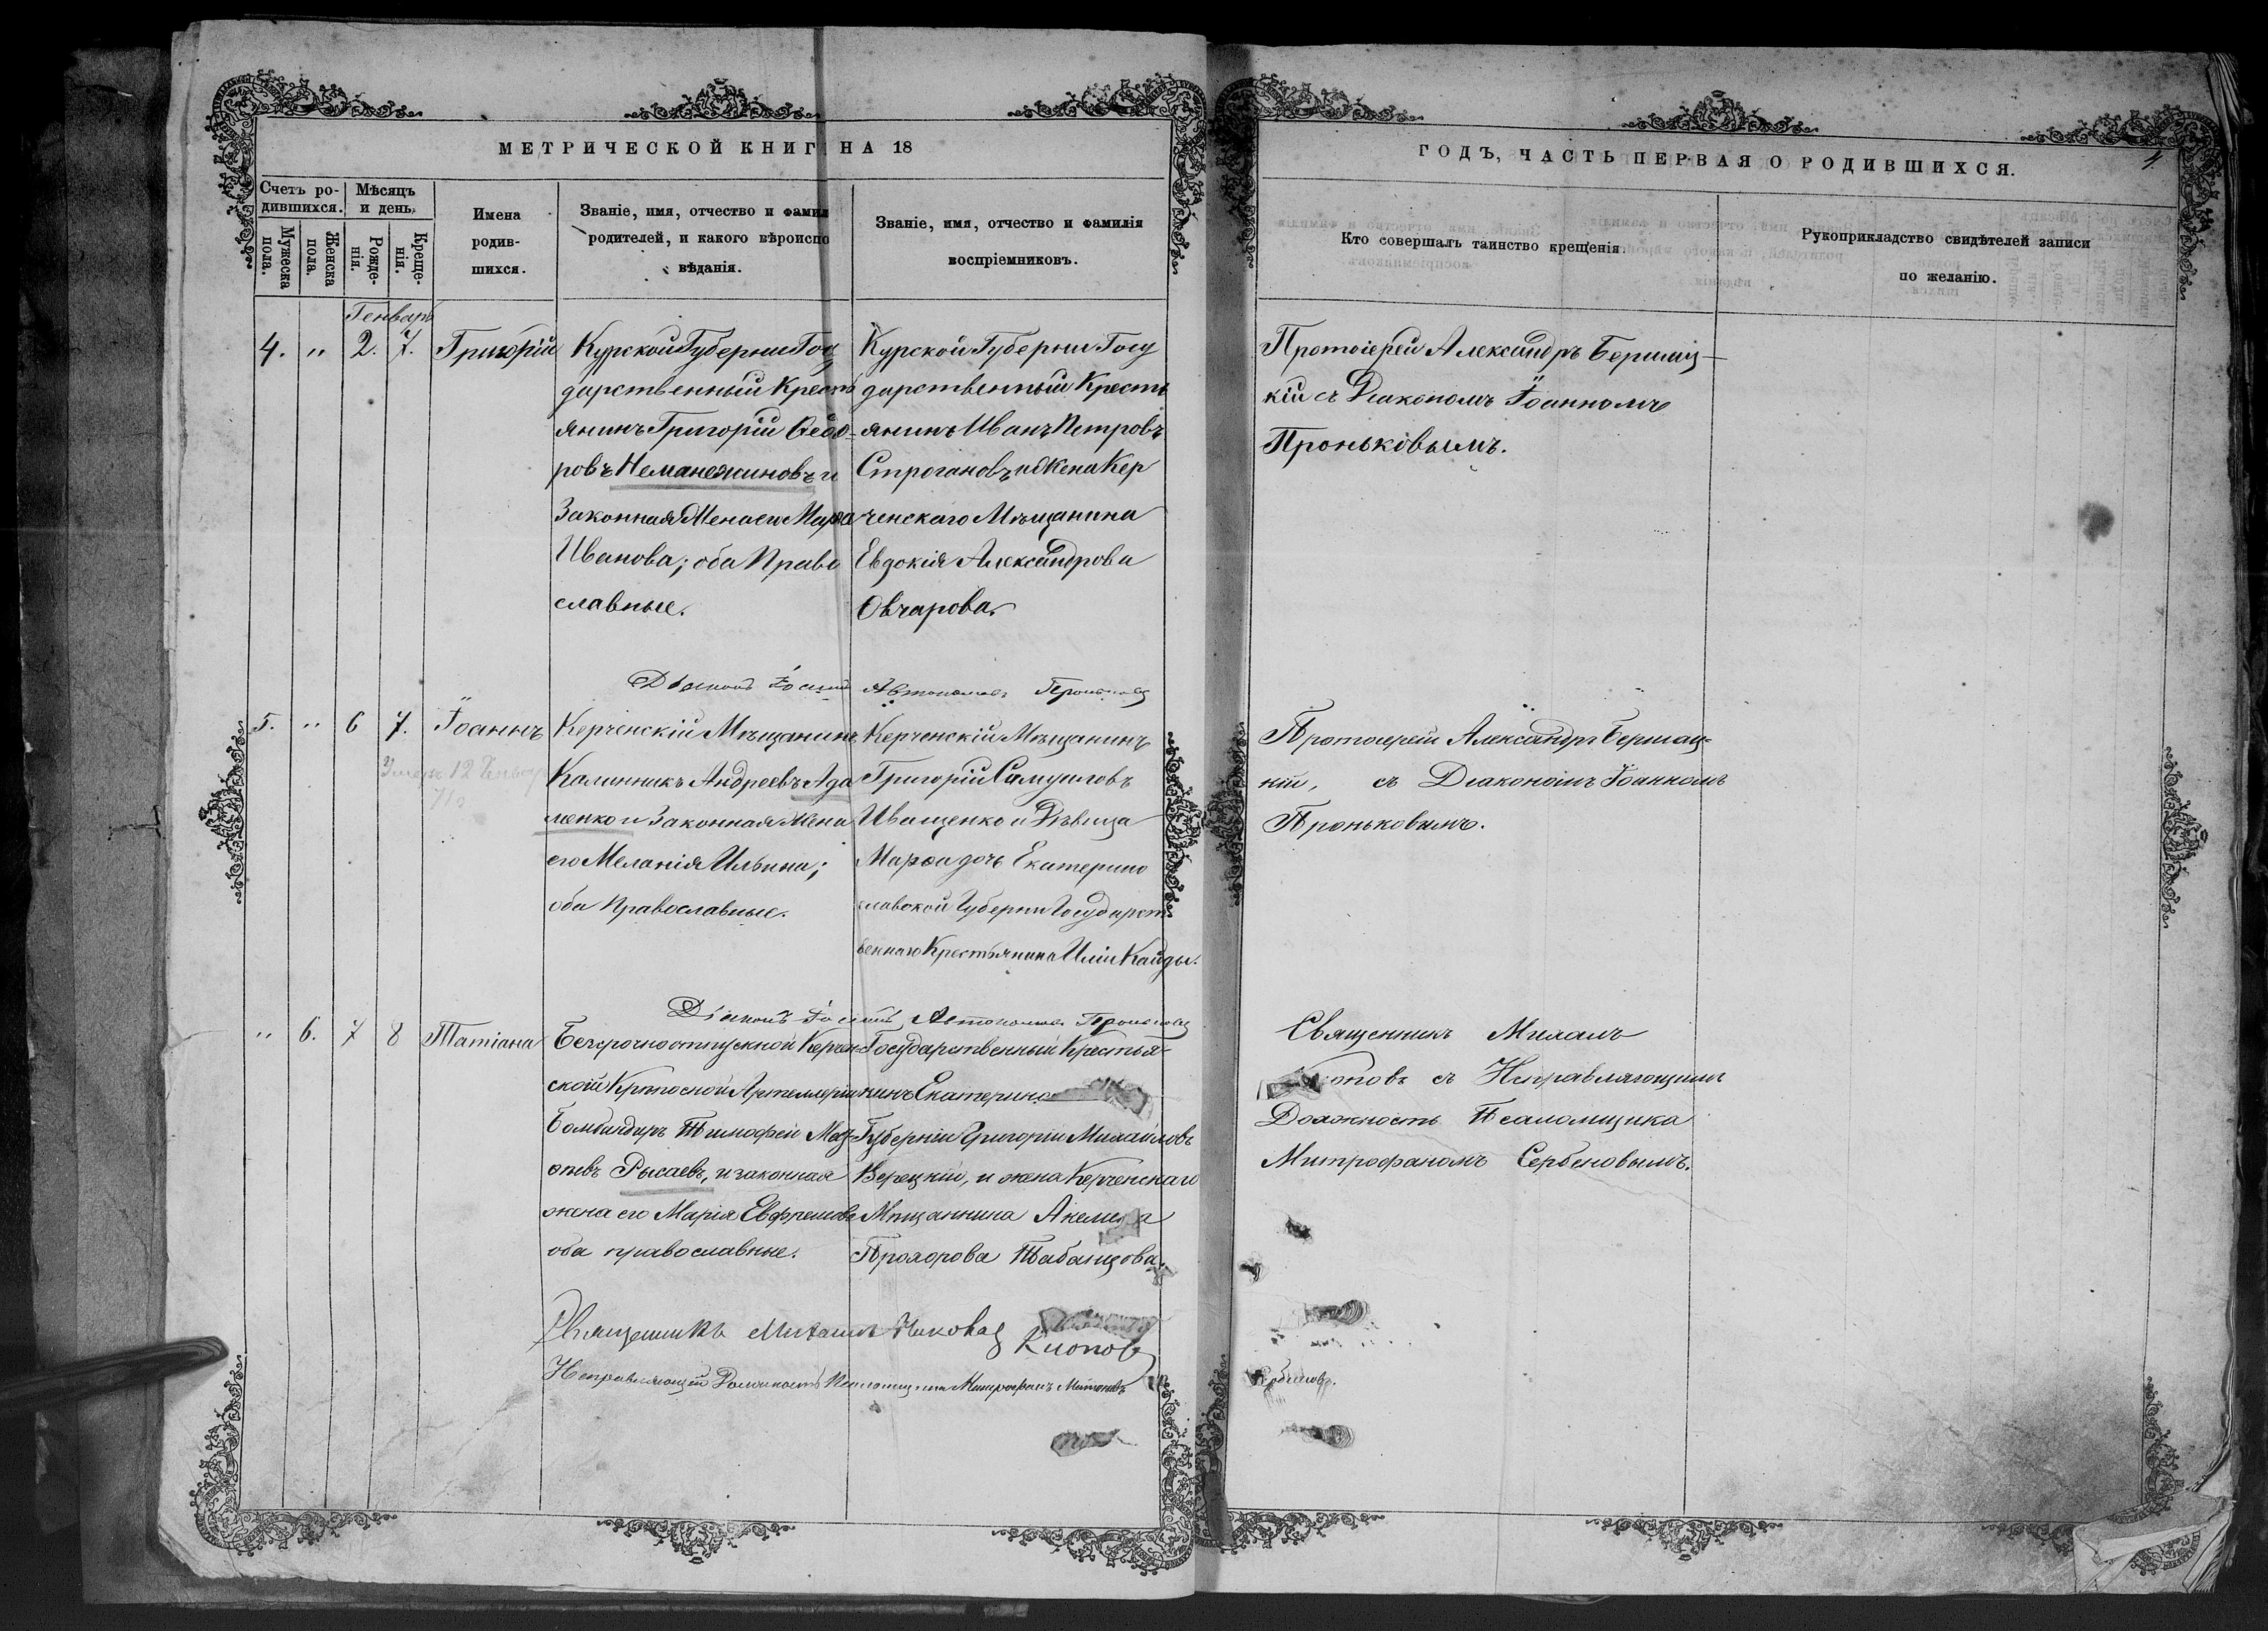 МЕТРИЧЕСКОЙ КНИГ НА 18
ГОДЪ, ЧАСТЬ ПЕРВАЯ О РОДИВШИХСЯ.
4.
Счетъ ро-
дившихся.
Мужеска
пола.
Женска
пола.
Мѣсяцъ
и день.
Рожде-
нія.
Креще-
нія.
Имена
родив-
шихся.
Званіе, имя, отчество и фамил
родителей, и какого вѣроиспо
вѣданія.
Званіе, имя, отчество и фамилія
воспріемниковъ.
Кто совершалъ таинство крещенія.
Рукоприкладство свидѣтелей записи
по желанію.
Генварь
4. " 2. 7. Григорій
Курской Губерніи Госу
дарственный Кресть
янинъ Григорій Ѳедо-
ровъ Неманежиновъ и
Законная Жена его Марѳа
Иванова; оба Право
славные.
Курской Губерніи Госу
дарственный Кресть
янинъ Иванъ Петровъ
Строгановъ и Жена Кер
ченскаго Мѣщанина
Евдокія Александрова
Овчарова.
Протоіерей Александръ
кій съ Діакономъ Іоанномъ
Проньковымъ.
Діаконъ Іоаннъ Автономовъ Проньковъ
5. " 6 7. Іоаннъ
Умеръ 12 Генваря
Керченскій Мѣщанинъ
Калинникъ Андреевъ Ада
менко и Законная Жена
его Меланія Ильина;
оба Православные.
Керченскій Мѣщанинъ
Григорій Самуиловъ
Иващенко и Дѣвица
Марѳа дочь Екатерино
славской Губерніи Государст
веннаго Крестьянина Иліи Кайды.
Протоіерей Александръ
кій, съ Діакономъ Іоанномъ
Проньковымъ.
Діаконъ Іоаннъ Автономовъ Проньковъ
" 6. 7 8 Татіана
Безсрочноотпускной Керчен
ской Крѣпосной Артиллеріи
Бомбандиръ Тимофей
Рысаевъ, и законная
жена его Марія Евфремова
оба православные.
Государственный Крестья-
нинъ Екатерино
Губерніи Григорій Михайловъ
Верецкій, и жена Керченскаго
Мѣщанина
Прохорова Табанцова.
Священникъ Михаилъ
съ Исправляющимъ
Должность Псаломщика
Митрофаномъ Сербеновымъ.
Священникъ Михаилъ
Клоповъ
Исправляющій Должность Псаломщика Митрофанъ